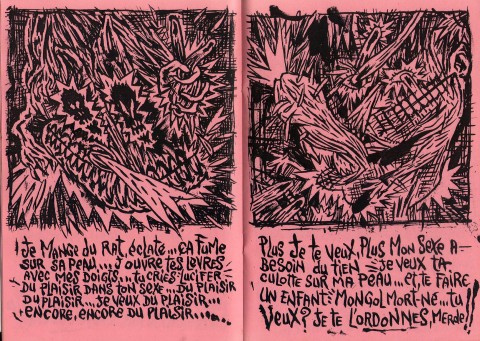 ! Je MANGE DU RAT, éclaté... ÇA FUME
SUR SA PEAU... J'OUVRE TES LEVRES
AVEC MES DOIGTS... TU CRIES LUCIFER
DU PLAISIR DANS TON SEXE... DU PLAISIR
DU PLAISIR... JE VEUX DU PLAISIR...
ENCORE, ENCORE DU PLAISIR...
PLUS Je Te VEUX, PLUS MON SEXE A
BESOIN DU TIEN JE VEUX TA
CULOTTE SUR MA PEAU... et Te FAIRE
UN ENFANT MONGOL MORT-NÉ... TU
VEUX? JE TE L'ORDONNES, MERDE!!